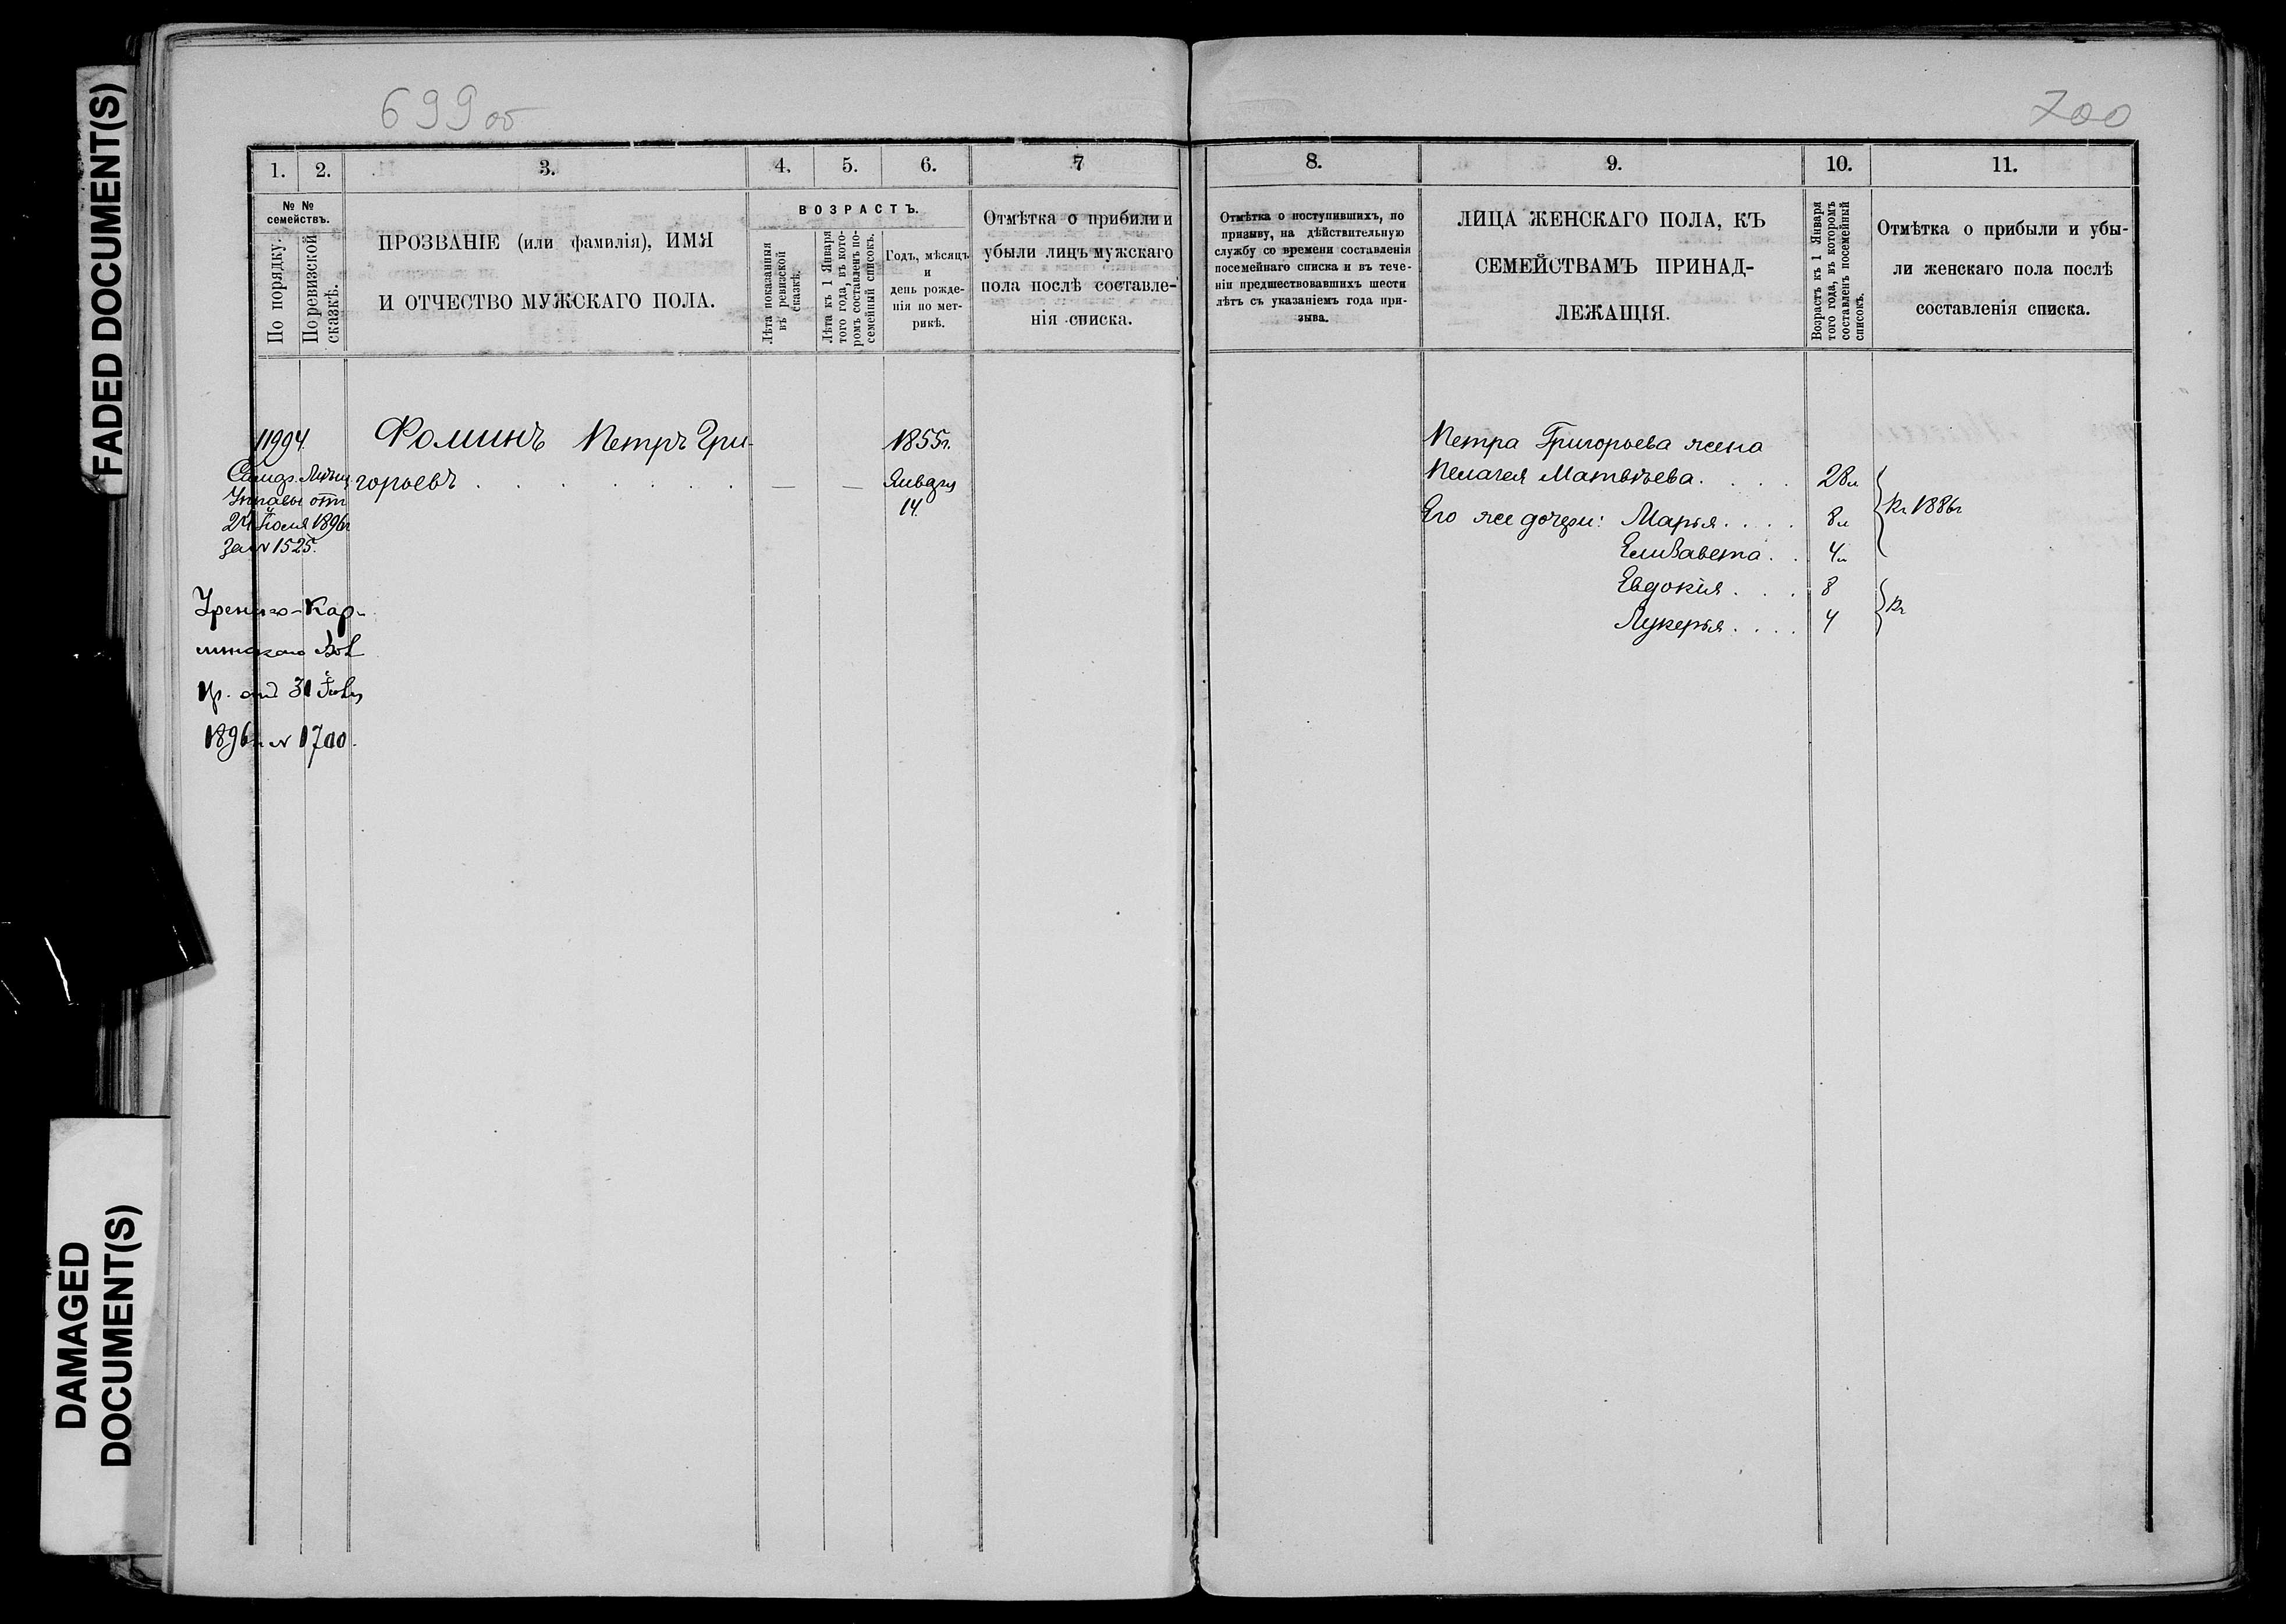 FADED DOCUMENT(S)
DAMAGED
DOCUMENT(S)
699 об
1. 2. 3. 4. 5. 6. 7
№ №
семействъ.
По порядку.
По ревизской
сказкѣ.
ПРОЗВАНІЕ (или фамилія), ИМЯ
И ОТЧЕСТВО МУЖСКАГО ПОЛА.
ВОЗРАСТЪ.
Лѣта показанныя
въ ревизской
сказкѣ.
Лѣта къ 1 Января
того года, въ кото-
ромъ составленъ по-
семейный списокъ.
Годъ, мѣсяцъ
и
день рожде-
нія по мет-
рикѣ.
Отмѣтка о прибыли и
убыли лицъ мужскаго
пола послѣ составле-
нія списка.
11994.
Управы отъ
24 Іюля 1896г
за № 1525.
Фоминъ Петръ Гри-
горьевъ . . . . . . . — —
1855г.
Января
14.
31
1896г. № 1700.
700
8. 9. 10. 11.
Отмѣтка о поступившихъ, по
призыву, на дѣйствительную
службу со времени составленія
посемейнаго списка и въ тече-
ніи предшествовавшихъ шести
лѣтъ съ указаніемъ года при-
зыва.
ЛИЦА ЖЕНСКАГО ПОЛА, КЪ
СЕМЕЙСТВАМЪ ПРИНАД-
ЛЕЖАЩІЯ.
Возрастъ къ 1 Января
того года, въ которомъ
составленъ посемейный
списокъ.
Отмѣтка о прибыли и убы-
ли женскаго пола послѣ
составленія списка.
Петра Григорьева жена
Пелагея Матвѣева. . . . 28л
Его же дочери: Марья. . . . 8л
Елизавета . . 4л
1886г
Евдокія . . . 8
Лукерья . . . . 4